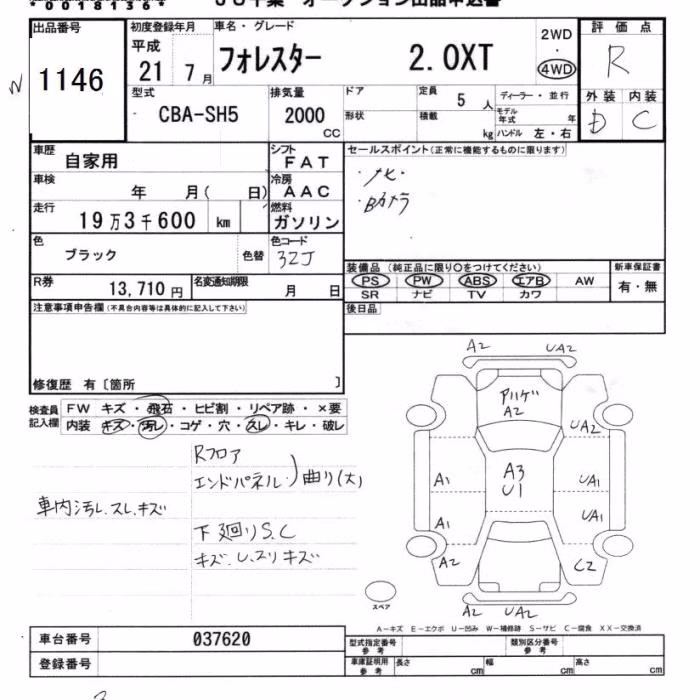 *00181364*
JU千葉 オークション出品申込書
出品番号 初度登録年月 車名・グレード 2WD・4WD 評価点
N 1146 平成 21 7月 フォレスター 2.0XT R
型式 排気量 ドア 定員 ディーラー・並行 外装 内装
CBA-SH5 2000 CC 5人 D C
形状 積載 kg モデル年式 年 ハンドル 左・右
車歴 自家用 シフト FAT セールスポイント(正常に機能するものに限ります)
車検 年 月( 日) 冷房 AAC ・ナビ・
走行 19万3千600 km 燃料 ガソリン ・Bカメラ
色 ブラック 色替 色コード 32J
装備品(純正品に限り○をつけてください) 新車保証書
R券 13,710円 名変通知期限 月 日 PS PW ABS エアB AW 有・無
SR ナビ TV カワ
注意事項申告欄(不具合内容等は具体的に記入して下さい) 後日品
修復歴 有〔箇所 〕
検査員記入欄 FW キズ・飛石・ヒビ割・リペア跡・×要
内装 キズ・汚レ・コゲ・穴・スレ・キレ・破レ
A2 UA2
アトゲ
A2
UA2
A3
U1
A1 UA1
A1 UA1
A2 C2
A2 UA2
Rフロア
エンドパネル)曲り(大)
車内汚レ.スレ.キズ
下廻りS.C
キズ.U.スリキズ
スペア
A−キズ E−エクボ U−凹み W−補修跡 S−サビ C−腐食 XX−交換済
車台番号 037620 型式指定番号 参考 類別区分番号 参考
登録番号 車庫証明用 参考 長さ cm 幅 cm 高さ cm